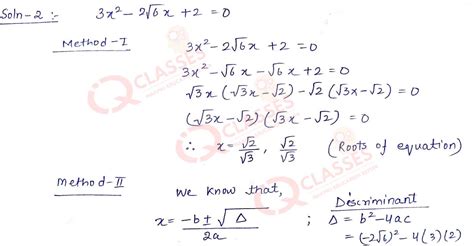 Soln-2 :- 3x² - 2√6 x + 2 = 0
Method-I 3x² - 2√6 x + 2 = 0
3x² - √6 x - √6 x + 2 = 0
√3 x (√3 x - √2) - √2 (√3 x - √2) = 0
(√3 x - √2) (√3 x - √2) = 0
∴ x = √2/√3 , √2/√3 (Roots of equation)
Method-II We know that,
x = -b ± √Δ / 2a ; Discriminant
Δ = b² - 4ac
= (-2√6)² - 4(3)(2)
IQ CLASSES
IQ CLASSES